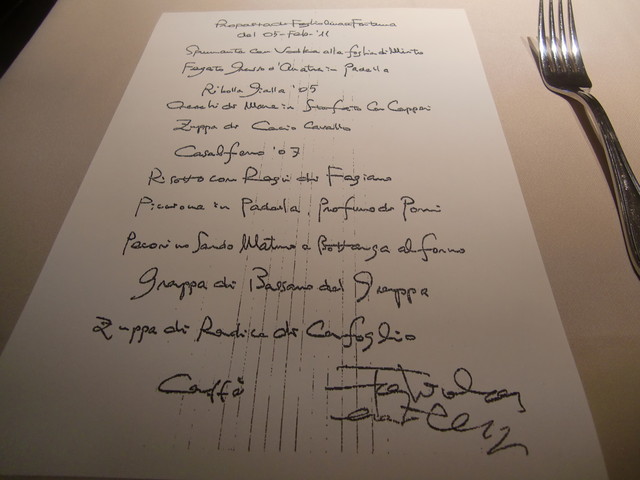 Proposta di Foglio
del 05-Feb-'11
Spumante con Vodka alla foglia di Menta
Fegato Grasso d'Anatra in Padella
Ribolla Gialla '05
di Mare in Guazzetto con Capperi
Zuppa di Cacio Cavallo
'07
Risotto con Ragù di Fagiano
Piccione in Padella, Profumo di Porri
Pecorino Sardo Maturo e al forno
Grappa di Bassano del Grappa
Zuppa di Radice di Cerfoglio
Caffè